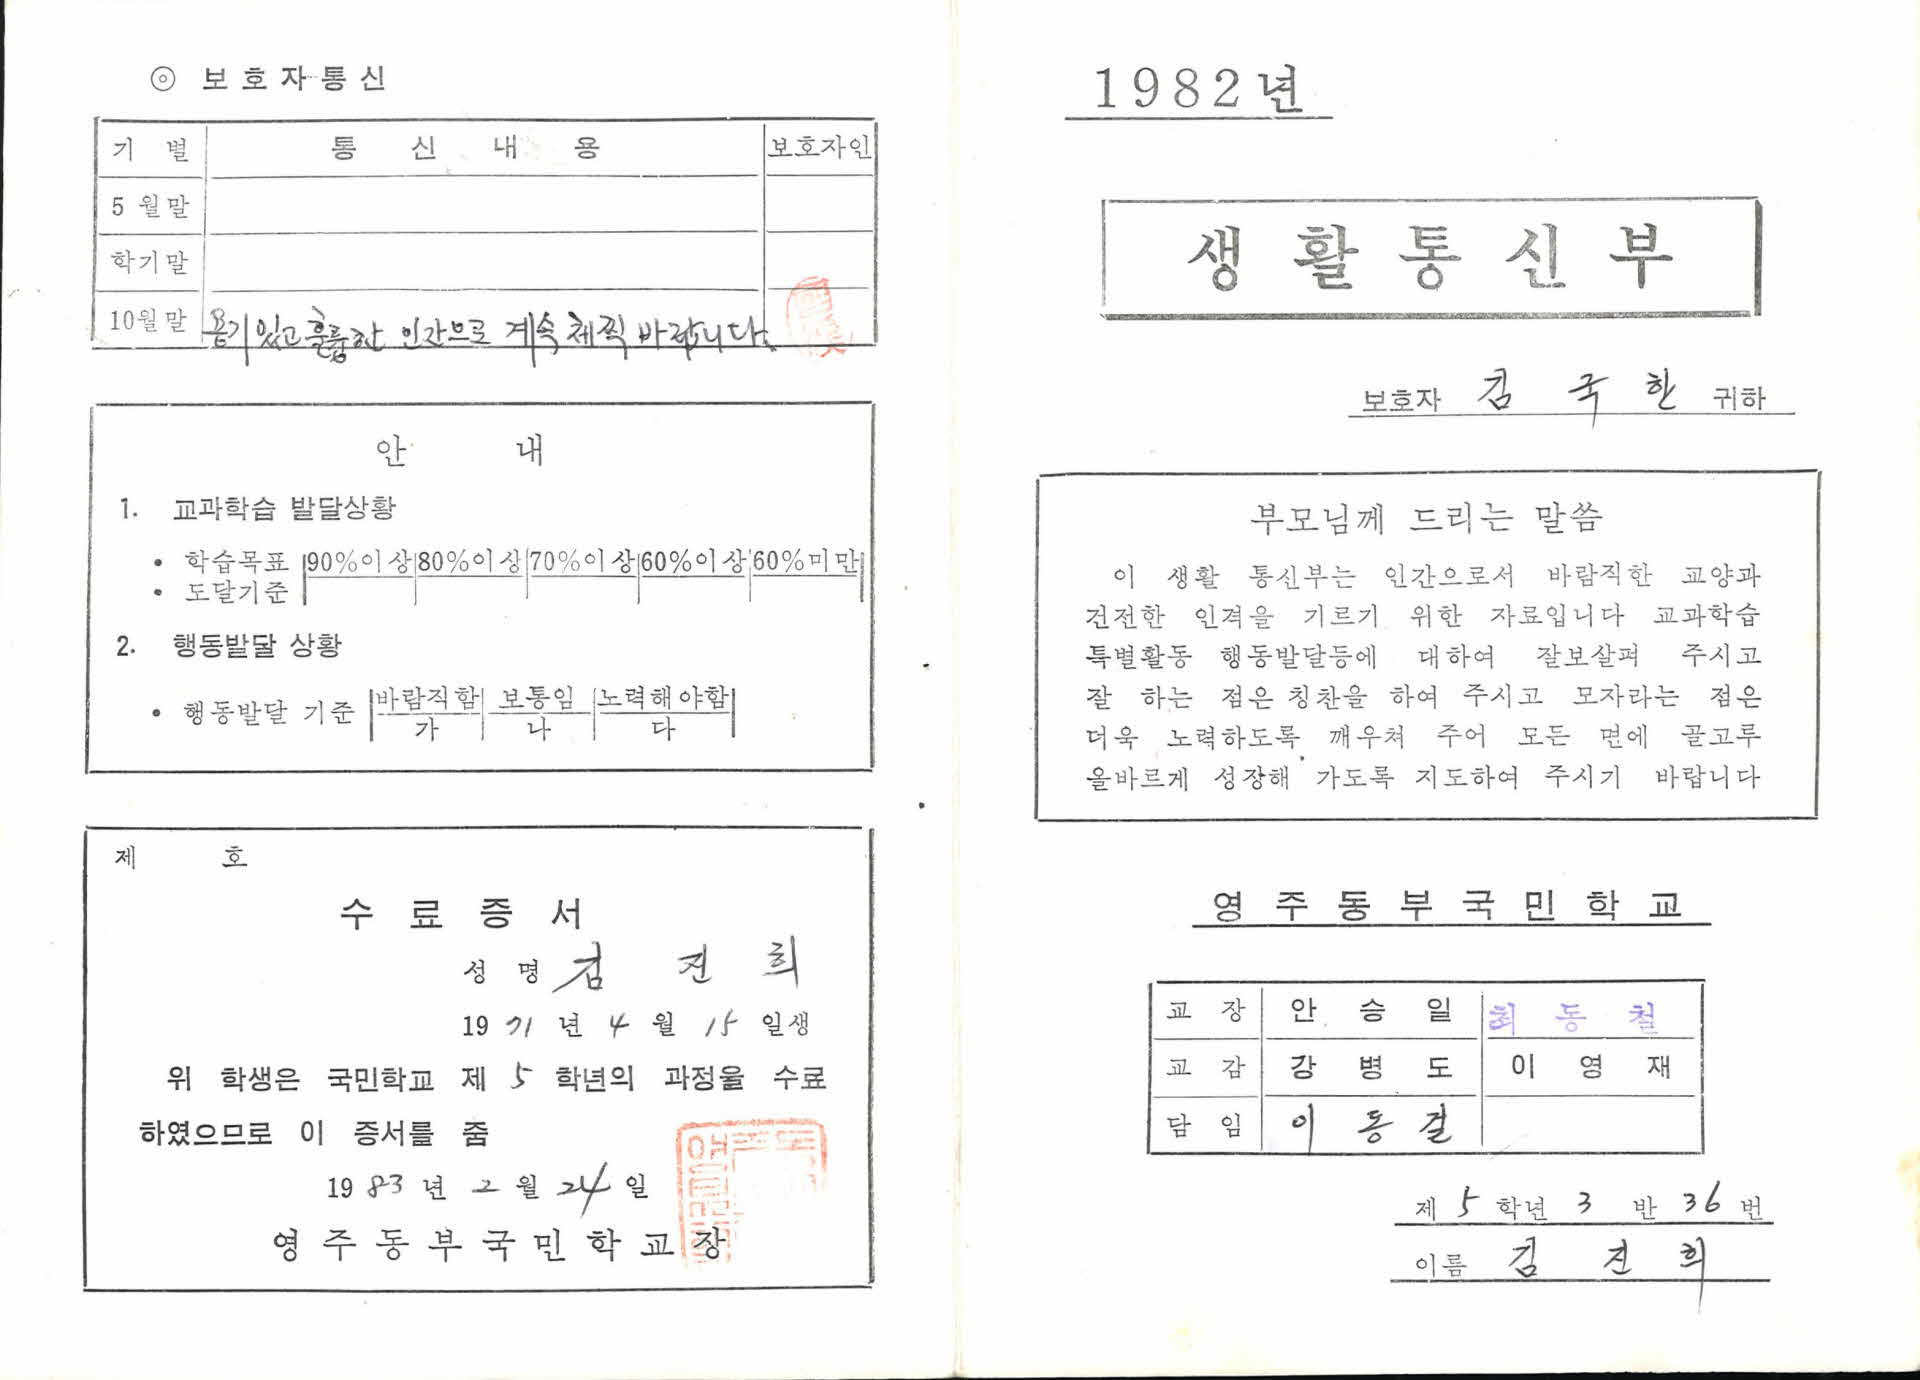 ◎ 보호자통신
기 별 통 신 내 용 보호자인
5 월말
학기말
10월말 용기있고 훌륭한 인간으로 계속 체찍 바랍니다.
안 내
1. 교과학습 발달상황
• 학습목표 90%이상 80%이상 70%이상 60%이상 60%미만
• 도달기준
2. 행동발달 상황
• 행동발달 기준 바람직함 보통임 노력해야함
가 나 다
제 호
수 료 증 서
성 명 김 진 희
19 71 년 4 월 15 일생
위 학생은 국민학교 제 5 학년의 과정을 수료
하였으므로 이 증서를 줌
19 83 년 2 월 24 일
영주동부국민학교장
1982년
생활통신부
보호자 김 국 한 귀하
부모님께 드리는 말씀
이 생활 통신부는 인간으로서 바람직한 교양과
건전한 인격을 기르기 위한 자료입니다 교과학습
특별활동 행동발달등에 대하여 잘보살펴 주시고
잘 하는 점은 칭찬을 하여 주시고 모자라는 점은
더욱 노력하도록 깨우쳐 주어 모든 면에 골고루
올바르게 성장해 가도록 지도하여 주시기 바랍니다
영주동부국민학교
교 장 안 승 일 최 동 철
교 감 강 병 도 이 영 재
담 임 이 동 걸
제 5 학년 3 반 36 번
이름 김 진 희